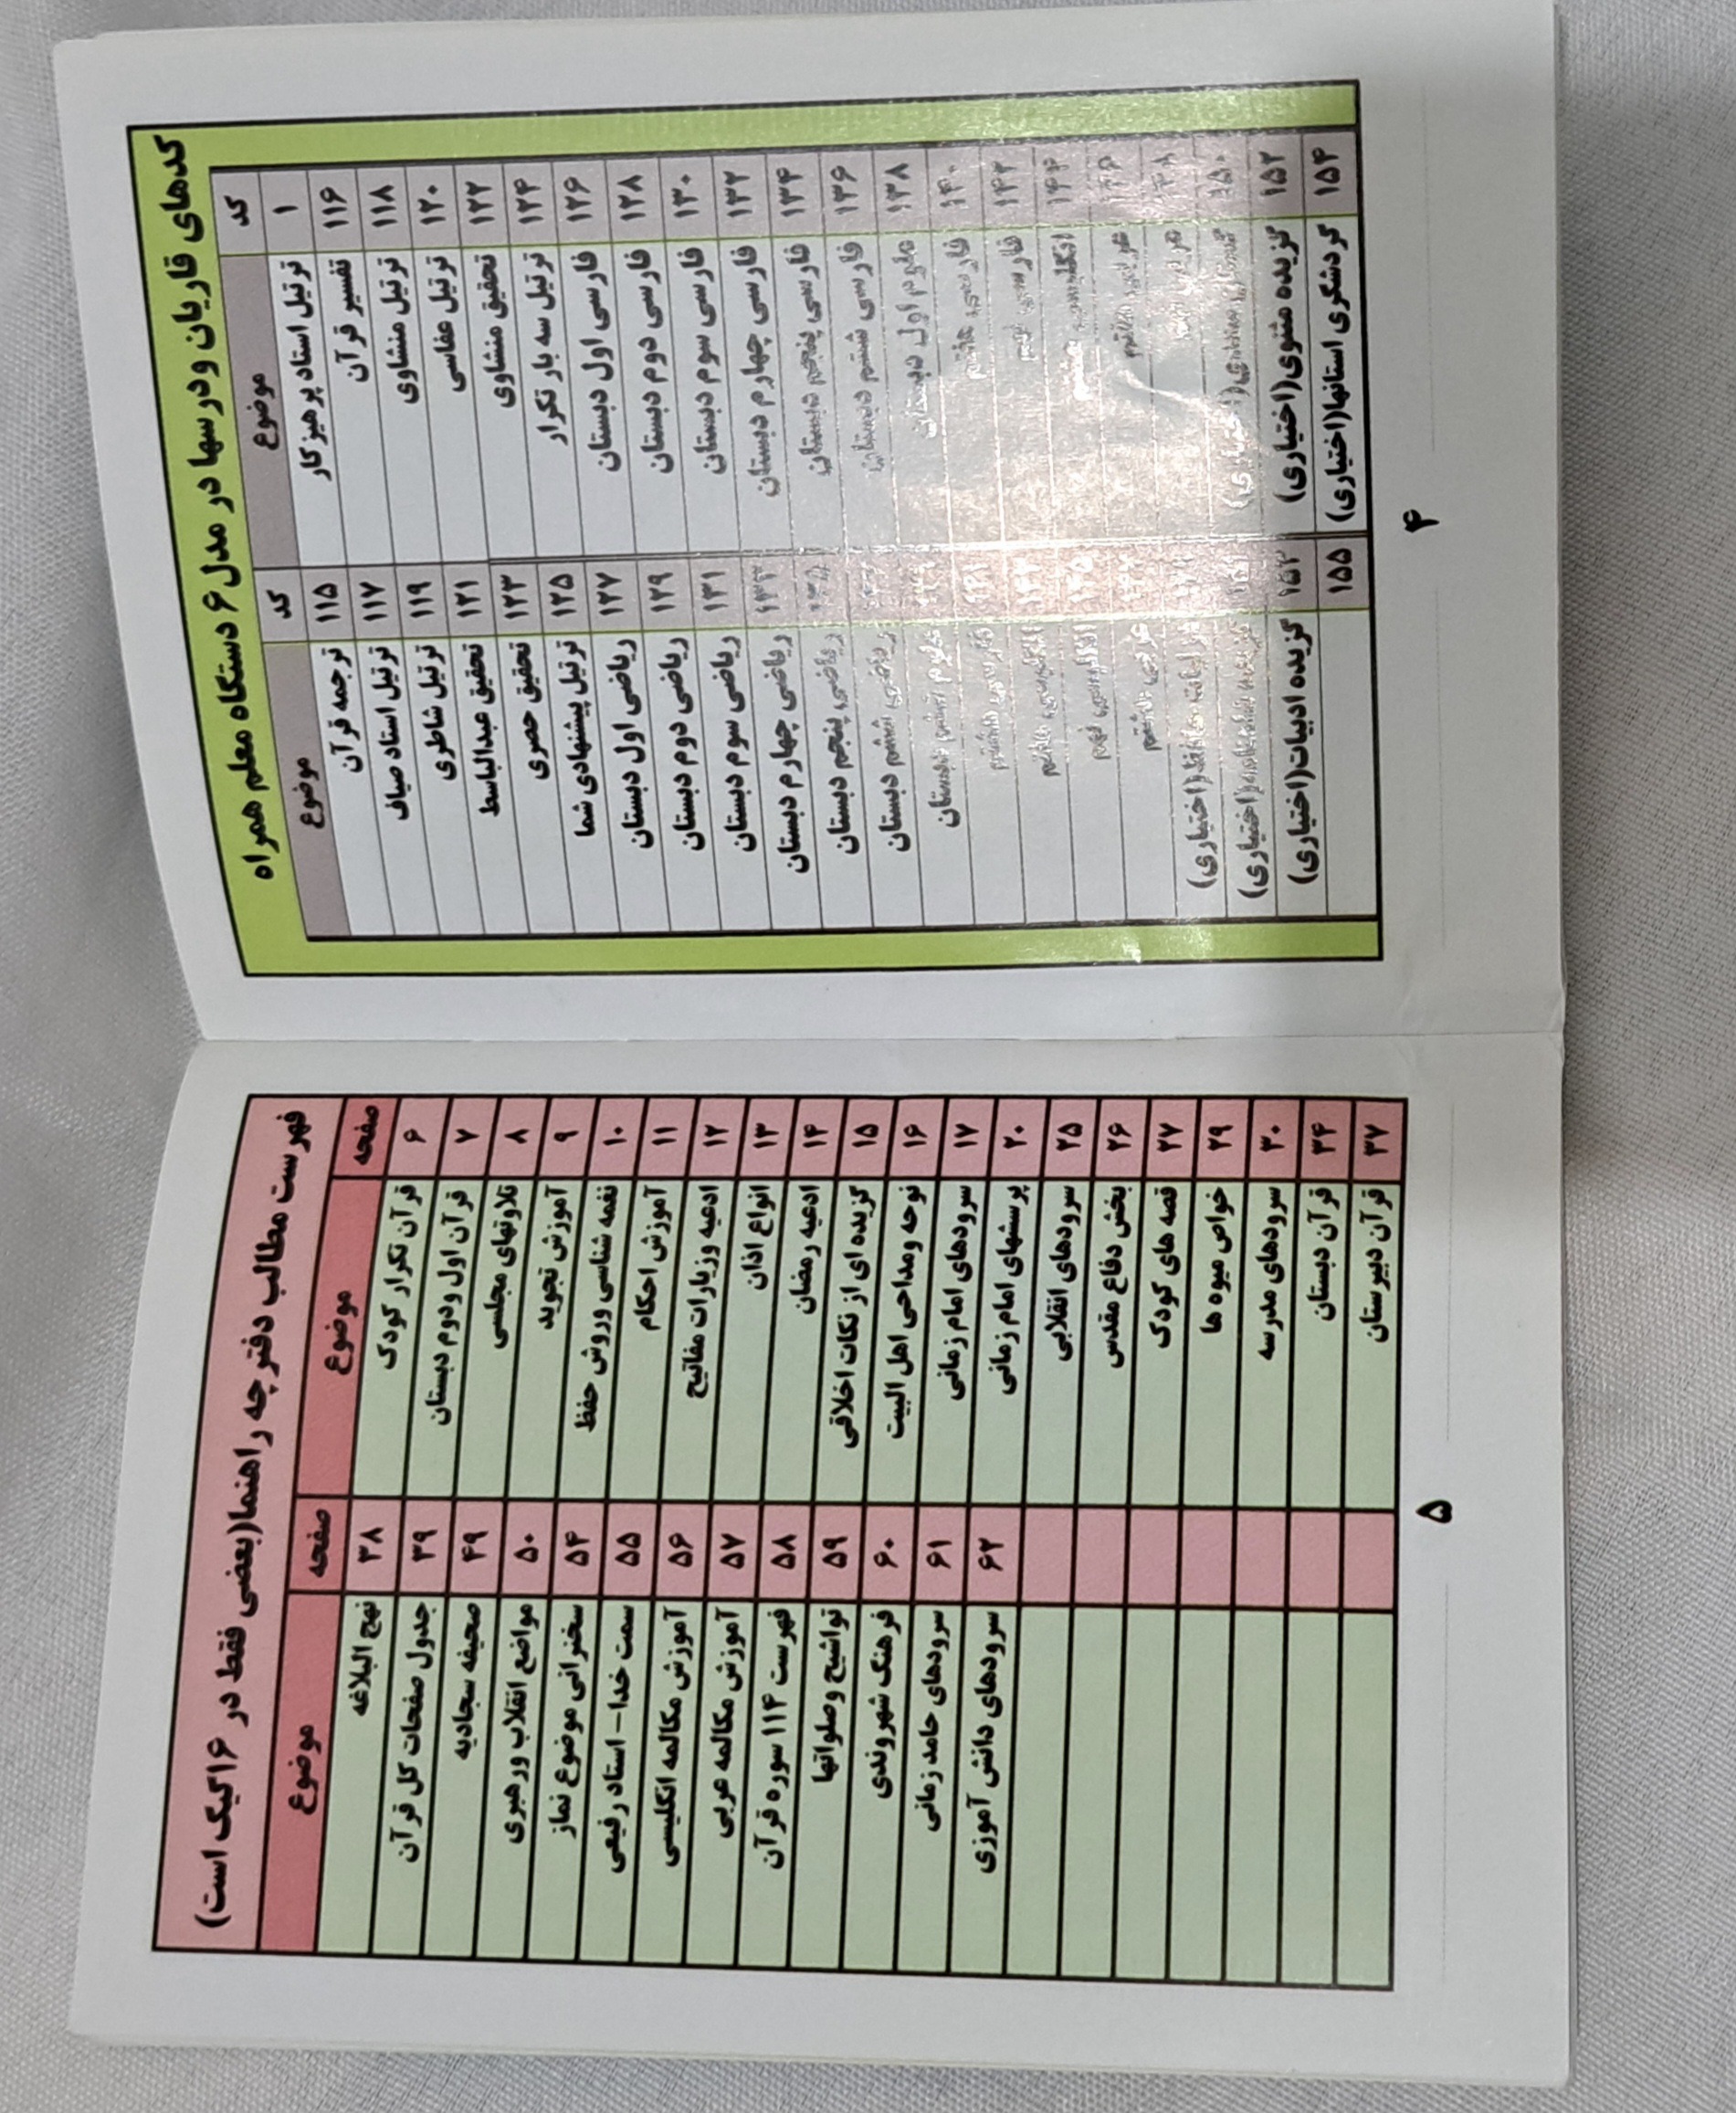 کدهای قاریان ودرسها در مدل ۶ دستگاه معلم همراه
کد موضوع کد موضوع
۱ ترتیل استاد پرهیزکار ۱۱۵ ترجمه قرآن
۱۱۶ تفسیر قرآن ۱۱۷ ترتیل استاد صیاف
۱۱۸ ترتیل منشاوی ۱۱۹ ترتیل شاطری
۱۲۰ ترتیل عفاسی ۱۲۱ تحقیق عبدالباسط
۱۲۲ تحقیق منشاوی ۱۲۳ تحقیق حصری
۱۲۴ ترتیل سه بار تکرار ۱۲۵ ترتیل پیشنهادی شما
۱۲۶ فارسی اول دبستان ۱۲۷ ریاضی اول دبستان
۱۲۸ فارسی دوم دبستان ۱۲۹ ریاضی دوم دبستان
۱۳۰ فارسی سوم دبستان ۱۳۱ ریاضی سوم دبستان
۱۳۲ فارسی چهارم دبستان ۱۳۳ ریاضی چهارم دبستان
۱۳۴ فارسی پنجم دبستان ریاضی پنجم دبستان
۱۳۶ فارسی ششم دبستان ریاضی ششم دبستان
۱۳۸ علوم اول دبستان علوم ششم دبستان
۱۴۰ فارسی هفتم ۱۴۱
۱۴۲ فارسی ۱۴۳
۱۴۴ ۱۴۵
(اختیاری)
(اختیاری)
۱۵۲ گزیده مثنوی(اختیاری) ۱۵۳ گزیده ادبیات(اختیاری)
۱۵۴ گردشگری استانها(اختیاری) ۱۵۵
۴
فهرست مطالب دفترچه راهنما(بعضی فقط در ۱۶گیگ است)
صفحه موضوع صفحه موضوع
۶ قرآن تکرار کودک ۳۸ نهج البلاغه
۷ قرآن اول ودوم دبستان ۳۹ جدول صفحات کل قرآن
۸ تلاوتهای مجلسی ۴۹ صحیفه سجادیه
۹ آموزش تجوید ۵۰ مواضع انقلاب ورهبری
۱۰ نغمه شناسی وروش حفظ ۵۴ سخنرانی موضوع نماز
۱۱ آموزش احکام ۵۵ سمت خدا-استاد رفیعی
۱۲ ادعیه وزیارات مفاتیح ۵۶ آموزش مکالمه انگلیسی
۱۳ انواع اذان ۵۷ آموزش مکالمه عربی
۱۴ ادعیه رمضان ۵۸ فهرست ۱۱۴سوره قرآن
۱۵ گزیده ای از نکات اخلاقی ۵۹ تواشیح وصلواتها
۱۶ نوحه ومداحی اهل البیت ۶۰ فرهنگ شهروندی
۱۷ سرودهای امام زمانی ۶۱ سرودهای حامد زمانی
۲۰ پرسشهای امام زمانی ۶۲ سرودهای دانش آموزی
۲۵ سرودهای انقلابی
۲۶ بخش دفاع مقدس
۲۷ قصه های کودک
۲۹ خواص میوه ها
۳۰ سرودهای مدرسه
۳۴ قرآن دبستان
۳۷ قرآن دبیرستان
۵